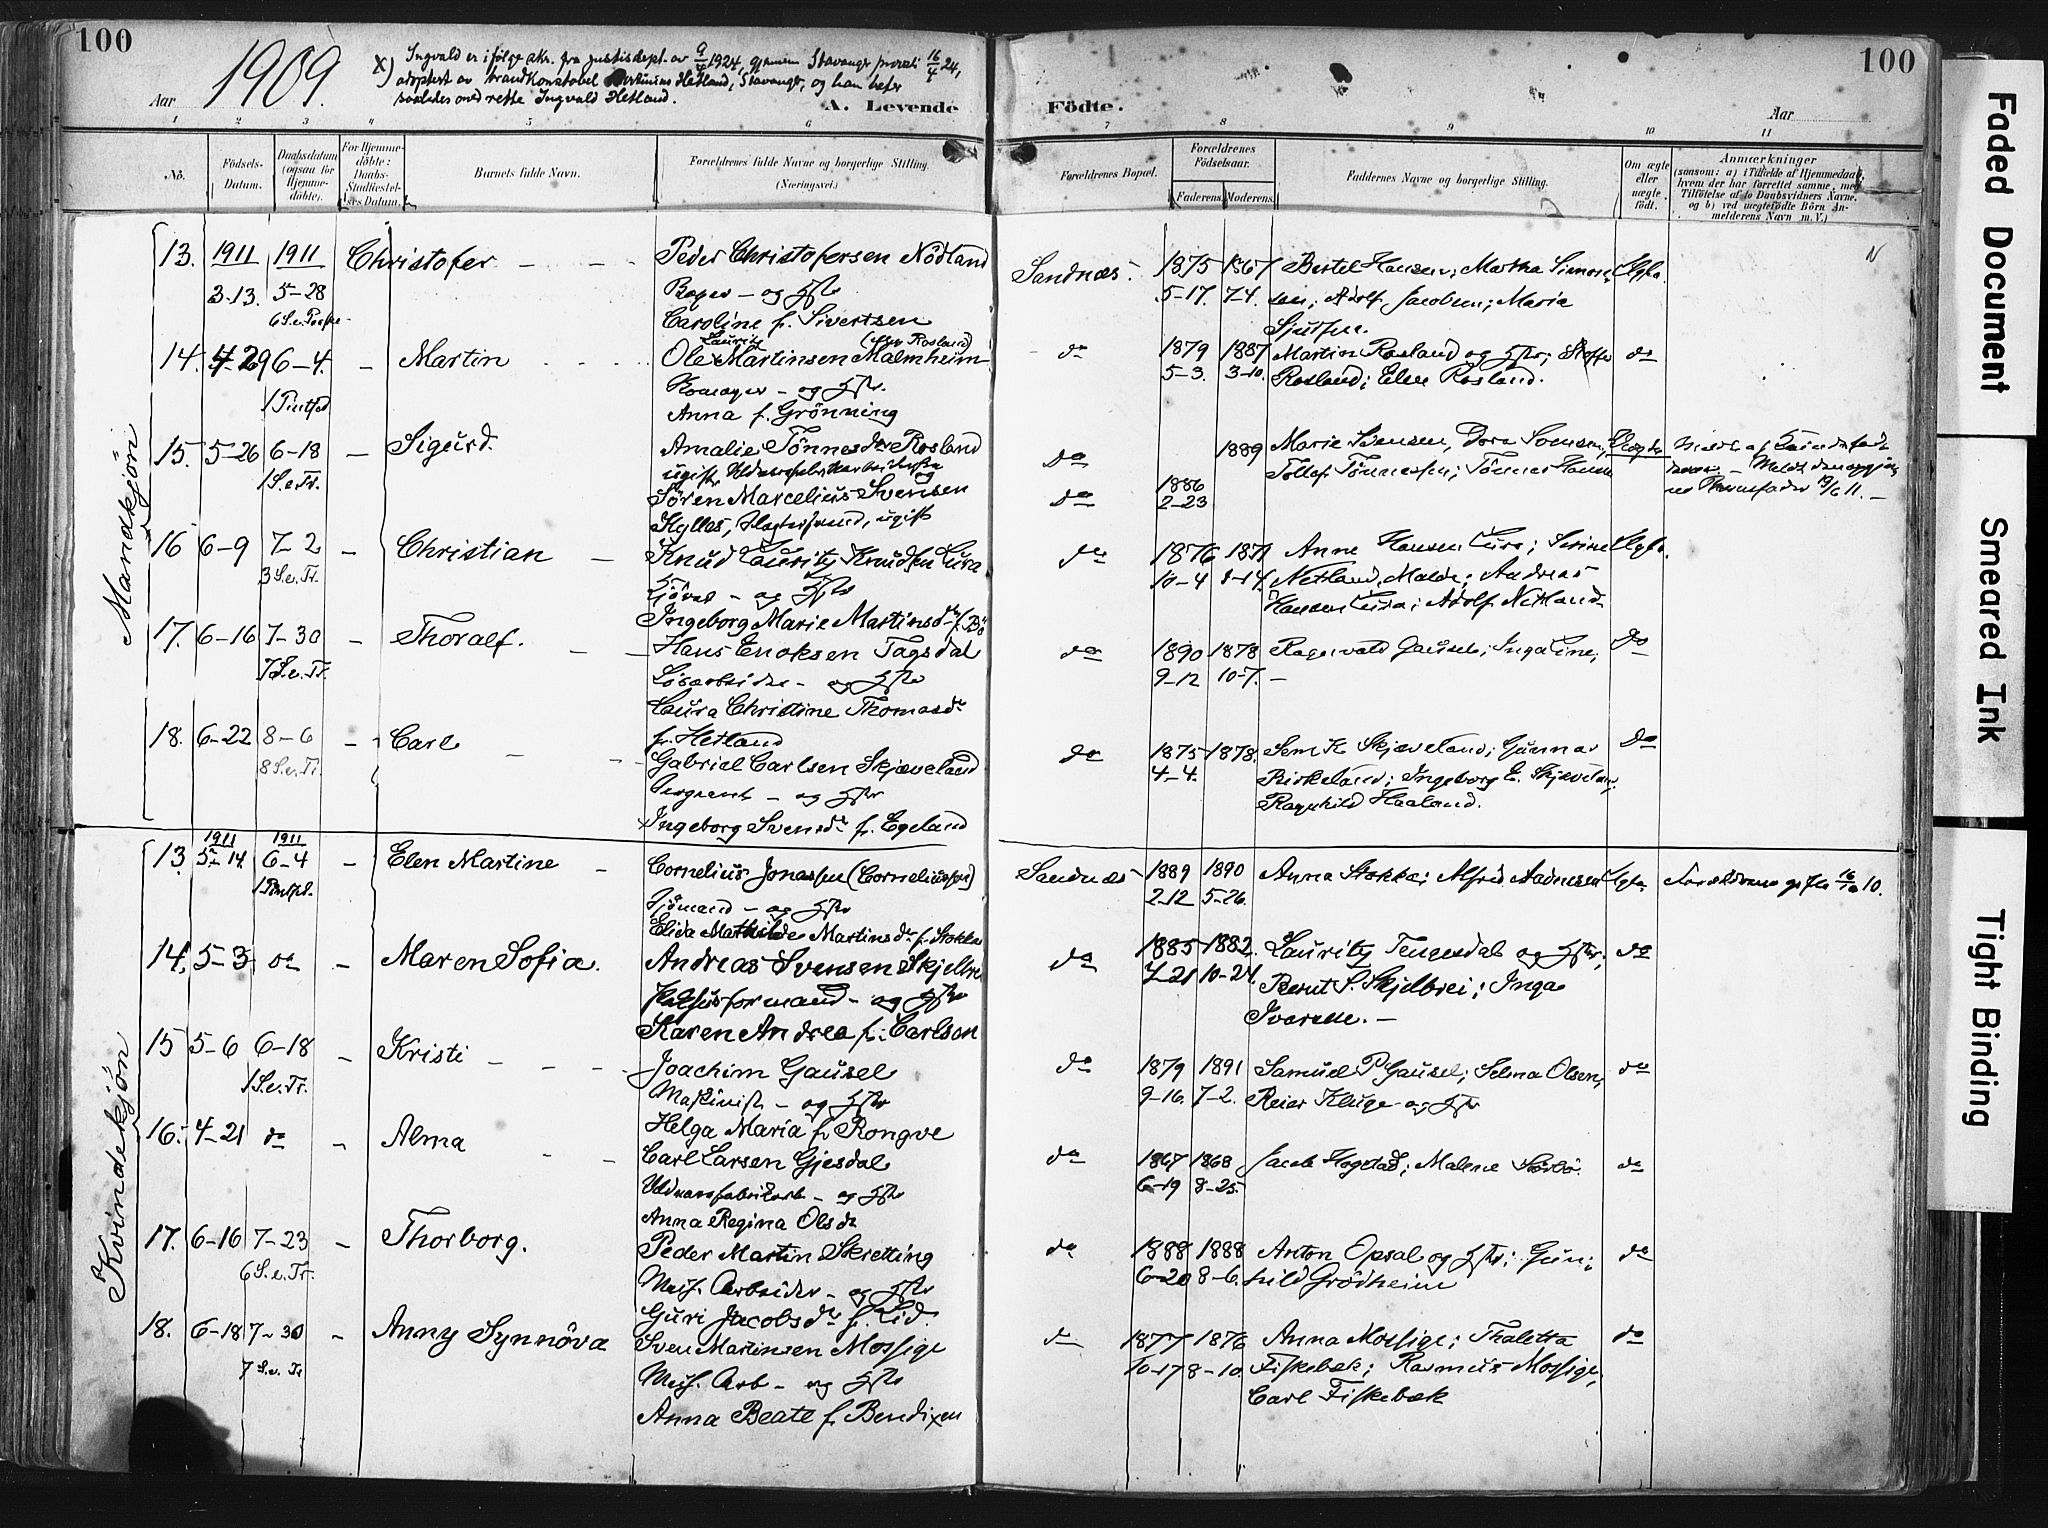 100
1909.
Aar
X) Ingvald er ifølge skr. fra justisdept. av 9/4 1924, gjennem Stavanger provsti 16/4 24,
adoptert av brandkonstabel Hetland, Stavanger, og han heter
saaledes med rette Ingvald Hetland.
A. Levende
Födte.
Aar
100
1 2 3 4 5 6 7 8 9 10 11
No.
Födsels-
Datum.
Daabsdatum
(ogsaa for
Hjemme-
döbte).
For Hjemme-
döbte:
Daabs-
Stadfæstel-
ses Datum.
Barnets fulde Navn.
Forældrenes fulde Navne og borgerlige Stilling.
(Næringsvei.)
Forældrenes Bopæl.
Forældrenes
Födselsaar.
Faderens.
Moderens.
Faddernes Navne og borgerlige Stilling.
Om ægte
eller
uægte
födt.
Anmærkninger
(saasom: a) i Tilfælde af Hjemmedaab,
hvem der har forrettet samme, med
Tilföielse af to Daabsvidners Navne.
og b) ved uægtefödte Börn An-
melderens Navn m. V.)
Mandkjön
13. 1911 1911 Christofer Peder Christofersen Nödland Sandnæs. 1875 1867 Bertel Hansen; Martha Simon-
3-13. 5-28 Bager - og Hstr 5-17. 7-4. sen; Adolf Jacobsen; Maria
Caroline f. Sivertsen
14. 4-29 6-4. - Martin Ole Lauritz Martinsen Malmheim (før Rosland) do 1879 1887 Martin Rosland og Hstr; do
- og Hstr. 5-3. 3-10. Rosland; Elen Rosland.
Anna f. Grönning
15. 5-26 6-18 - Sigurd. Amalie Tönnesdr Rosland do 1889 Marie Svensen, Dora Svensen,
1 S.e.Tr. ugift Tönnessen; Tönnes Hansen
Sören Marcelius Svensen do 1886
Kylles, ugift 2-23
16 6-9 7-2 - Christian Knud Lauritz Knudsen Lura do 1876 1871 Anne Hansen Lura; Serine
3 S.e.Tr. - og Hstr 10-4 Netland, Malde; Andreas
Ingeborg Marie Martinsdr f. Bö Hansen Lura; Adolf Netland
17. 6-16 7-30 - Thoralf. Hans Enoksen Tagsdal do 1890 1878 Ragnvald Gausel; Inga Line; do
7 S.e.Tr. Lösarbeider - og Hstr 9-12 10-7.
Laura Christine Thomasdr
f. Hetland
18. 6-22 8-6 - Carl Gabriel Carlsen Skjæveland do 1875 1878. Sem K Skjæveland; Gunnar do
8 S.e.Tr. Sergeant - og Hstr 4-4. Birkeland; Ingeborg E. Skjæveland;
Ingeborg Svensdr f. Egeland Ragnhild Haaland.
Kvindekjön
1911 1911
13. 5-14 6-4 - Elen Martine Cornelius Jonassen (Corneliussen) Sandnæs 1889 1890 Anna Stokka; Alfred Aadnesen Forældrene gifte 16/10 10.
Sjömand - og Hstr 2-12 5-26.
Elida Mathilde Martinsdr f. Stokka
14. 5-3 do - Maren Sofia. Andreas Svensen Skjelbrei do 1885 1882. Lauritz Tengesdal og Hstr; do
formand - og Hstr 7-21 10-24. Bernt S. Skjelbrei; Inga
Karen Andrea f. Carlson
15 5-6 6-18 - Kristi Joachim Gausel do 1879 1891 Samuel P Gausel; Selma Olsen; do
1 S.e.Tr. Maskinist - og Hstr 9-16. 7-2. Reier Kluge og Hstr
Helga Maria f. Rongve
16. 4-21 do - Alma Carl Larsen Gjesdal do 1867 1868 Jacob Hogstad; Malene Sörbö do
Uldvarefabrikarb - og Hstr 6-19 8-25.
Anna Regina Olsdr
17. 6-16 7-23 - Thorborg. Peder Martin Skretting do 1888 1888 Anton Opsal og Hstr; Gun- do
6 S.e.Tr. Arbeider - og Hstr 6-20 8-6. hild Grödheim
Guri Jacobsdr f. Lid.
18. 6-18 7-30 - Anny Synnöva Sven Martinsen Mossige do 1877 1876 Anna Mossige; Thaletta do
7 S.e.Tr Arb - og Hstr 10-17 8-10. Fiskebæk; Rasmus Mossige,
Anna Beate f. Bendixen Carl Fiskebæk
Faded Document
Smeared Ink
Tight Binding